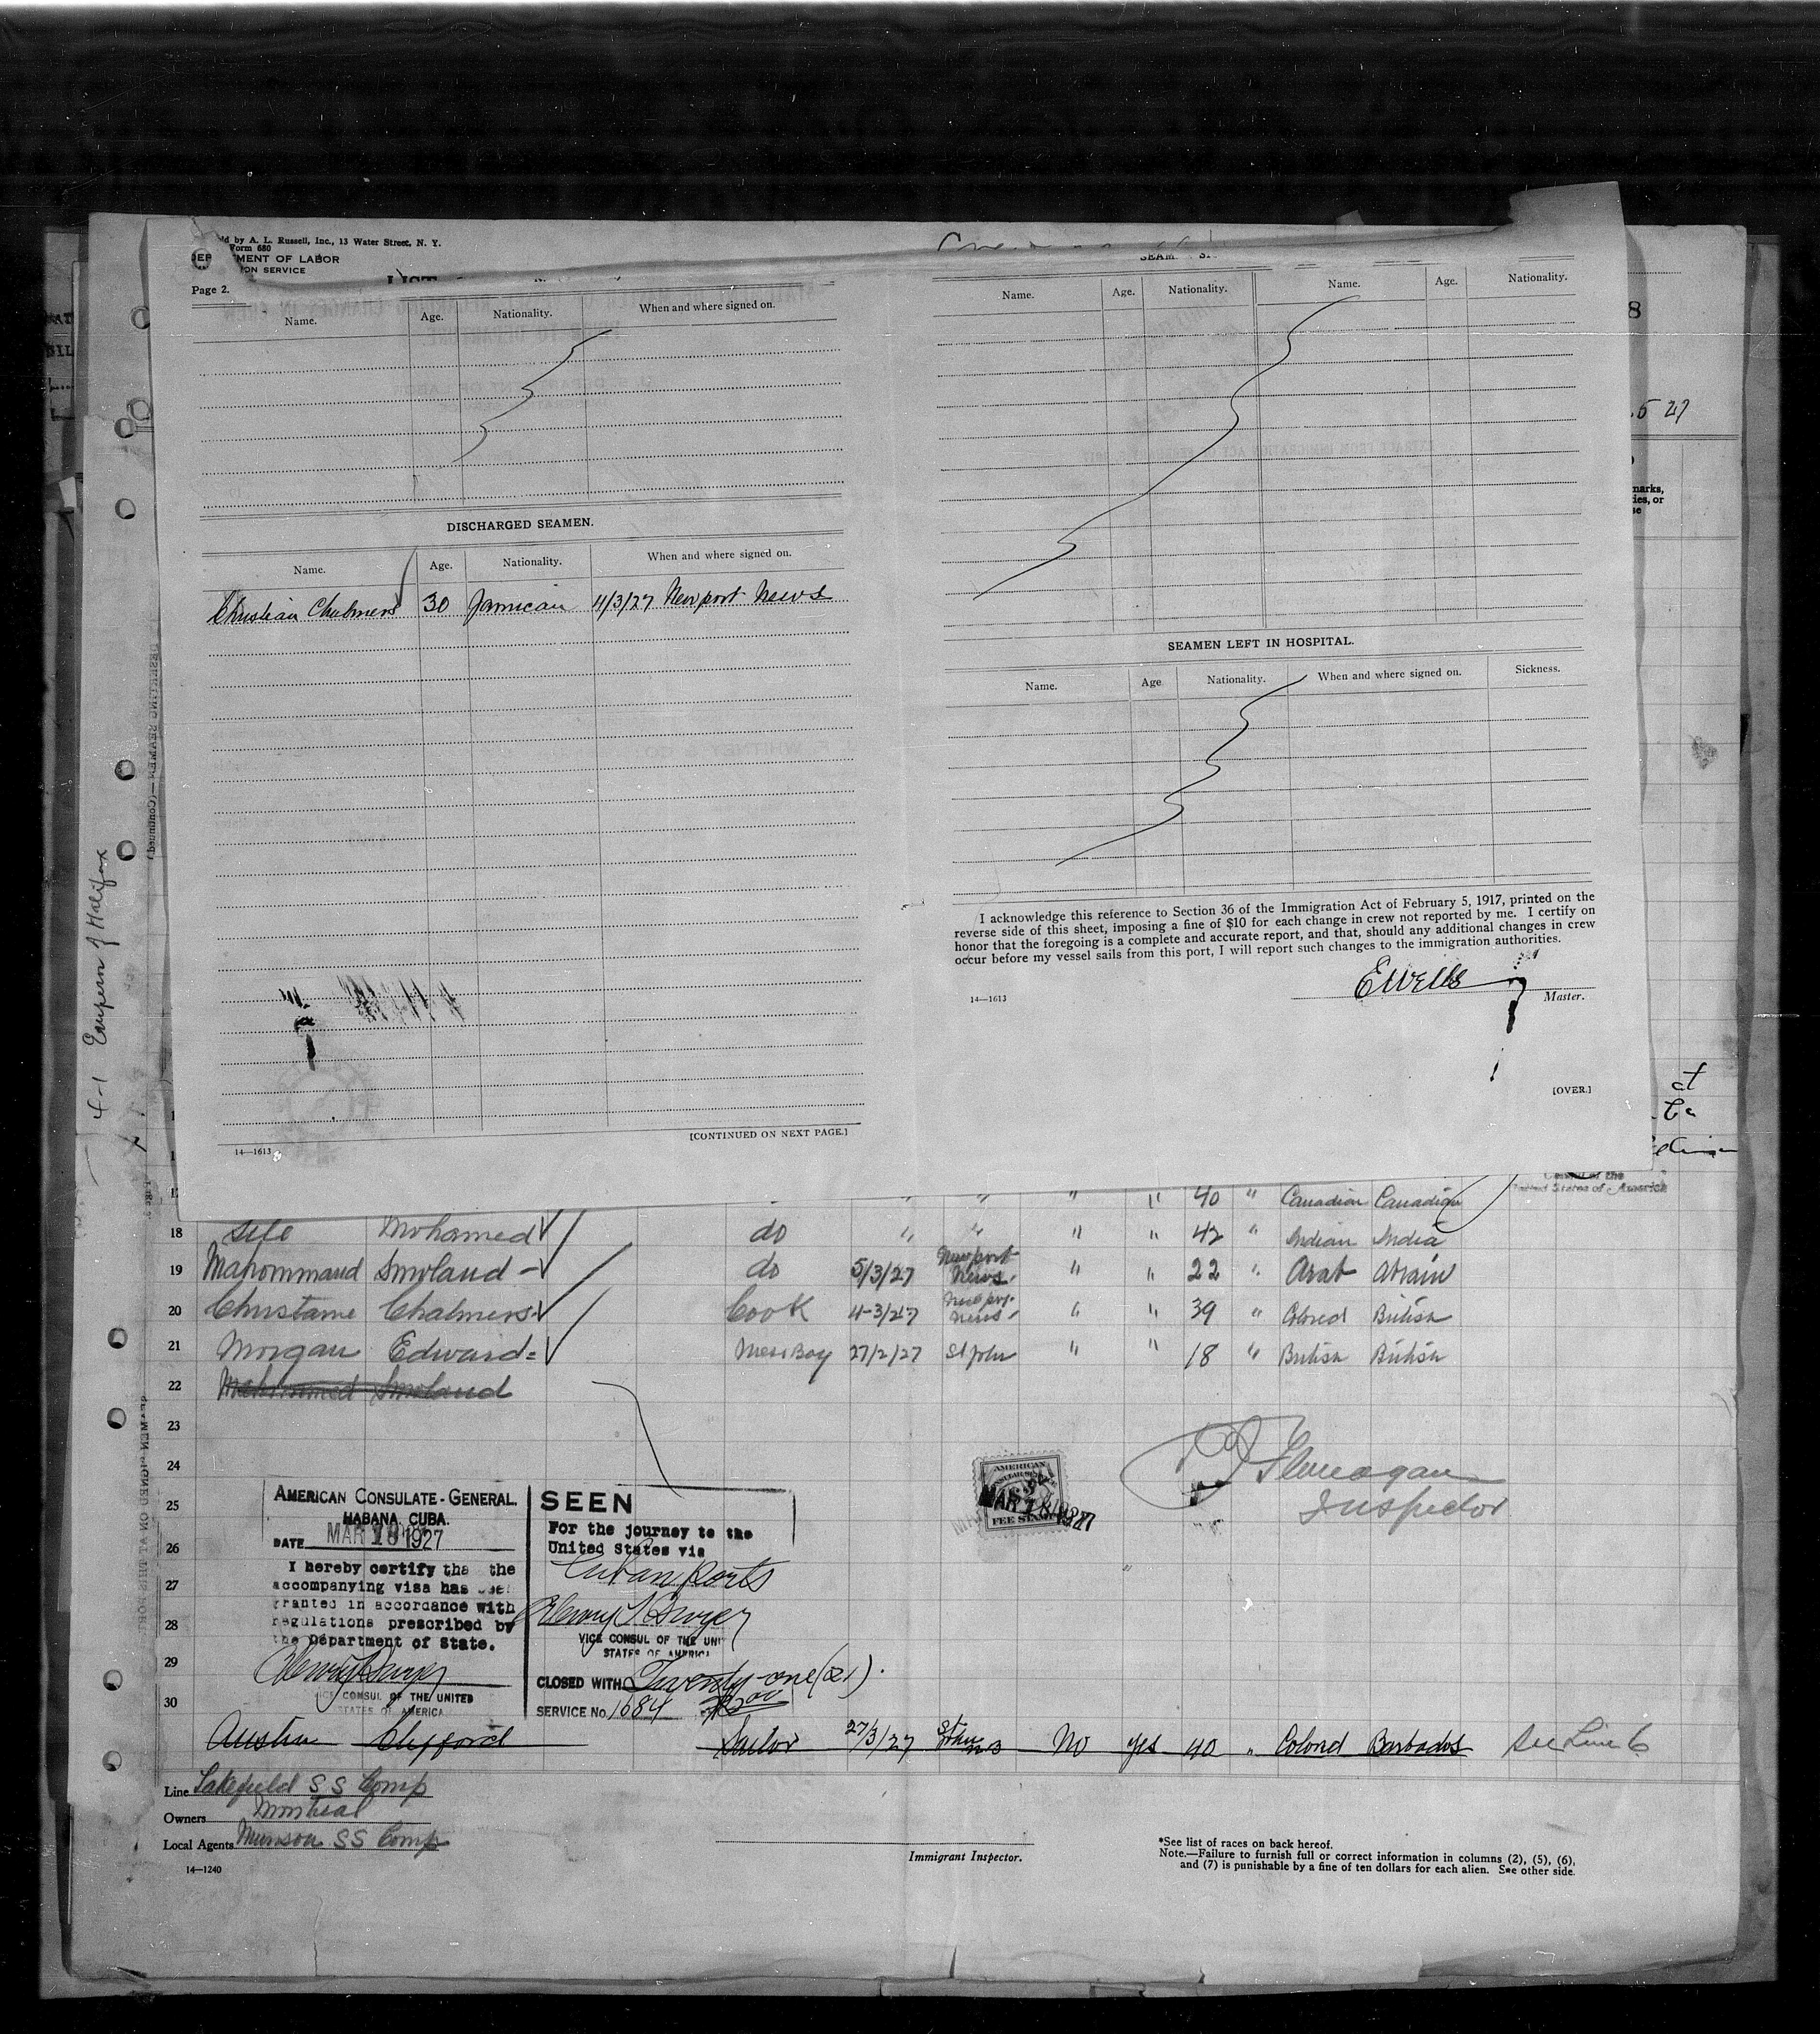 ld by A. L. Russell, Inc., 13 Water Street, N. Y.
Form 680
DEP MENT OF LABOR
ION SERVICE
LIST
Page 2.
Name. Age. Nationality. When and where signed on.
DISCHARGED SEAMEN.
Name. Age. Nationality. When and where signed on.
Christian Chalmers 30 Jamican 4/3/27 Newport News
[CONTINUED ON NEXT PAGE.]
14—1613
SEAM
Name. Age. Nationality. Name. Age. Nationality.
SEAMEN LEFT IN HOSPITAL.
Name. Age Nationality. When and where signed on. Sickness.
I acknowledge this reference to Section 36 of the Immigration Act of February 5, 1917, printed on the
reverse side of this sheet, imposing a fine of $10 for each change in crew not reported by me. I certify on
honor that the foregoing is a complete and accurate report, and that, should any additional changes in crew
occur before my vessel sails from this port, I will report such changes to the immigration authorities.
E Wells
14—1613 Master.
[OVER.]
8
.5 27
marks,
ies, or
se
at
4-1 Empern of Halifax
United States of America
" " " " 40 " Canadian Canadian
18 Mohamed do " " " " 42 " Indian India
19 Mahommand Smoland do 5/3/27 Newport News " " 22 " Arab
20 Christame Chalmers Cook 4-3/27 Newport News " " 39 " Colored British
21 Morgan Edward Mess Boy 27/2/27 St John " " 18 " British British
22 Mahommed Smoland
23
24
25
26
27
28
29
30
Flanagan
Inspector
AMERICAN
FEE STAMP
MAR 18 1927
AMERICAN CONSULATE-GENERAL.
HABANA, CUBA.
DATE MAR 18 1927
I hereby certify tha the
accompanying visa has
granted in accordance with
regulations prescribed by
the Department of State.
Henry T Dwyer
VICE CONSUL OF THE UNITED
STATES OF AMERICA
SEEN
For the journey to the
United States via
Cuban ports
Henry T Dwyer
VICE CONSUL OF THE UNI
STATES OF AMERICA
CLOSED WITH Twenty-one (21).
SERVICE No. 1684 $2.00
Austin Clifford Sailor 27/3/27 St John NB No yes 40 " Colored Barbados See Line 6
Line Lakefield S S Comp
Owners Montreal
Local Agents Munson SS Comp
14—1240
Immigrant Inspector.
*See list of races on back hereof.
Note.—Failure to furnish full or correct information in columns (2), (5), (6),
and (7) is punishable by a fine of ten dollars for each alien. See other side.